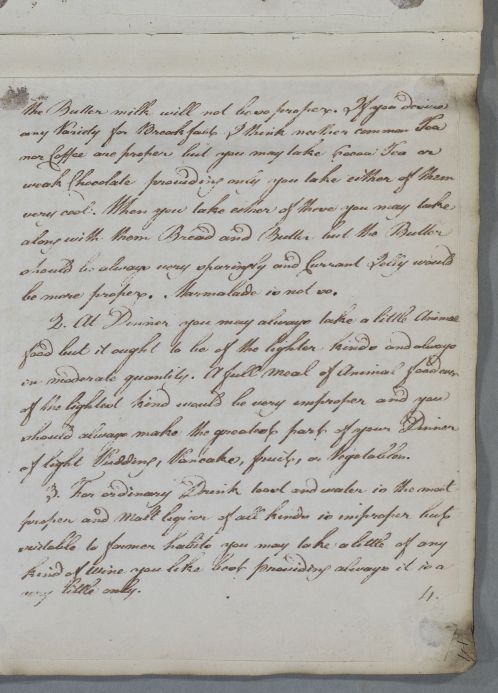 the Butter milk will not be so proper. If you desire
any Variety for Breakfast I think neither common Tea
nor Coffee are proper but you may take Cocoa Tea or
weak Chocolate providing only you take either of them
very cool. When you take either of these you may take
along with them Bread and Butter but the Butter
should be always very sparingly and Currant Jelly would
be more proper. Marmalade is not so.
2. At Dinner you may always take a little Animal
food but it ought to be of the lighter kinds and always
in moderate quantity. A full meal of Animal food even
of the lightest kind would be very improper and you
should always make the greatest part of your Dinner
of light Pudding, Pancake, fruit, or Vegetables.
3. For ordinary Drink toast and water is the most
proper and Malt liquor of all kinds is improper but
suitable to former habits you may take a little of any
kind of Wine you like best providing always it is a
very little only.
4.